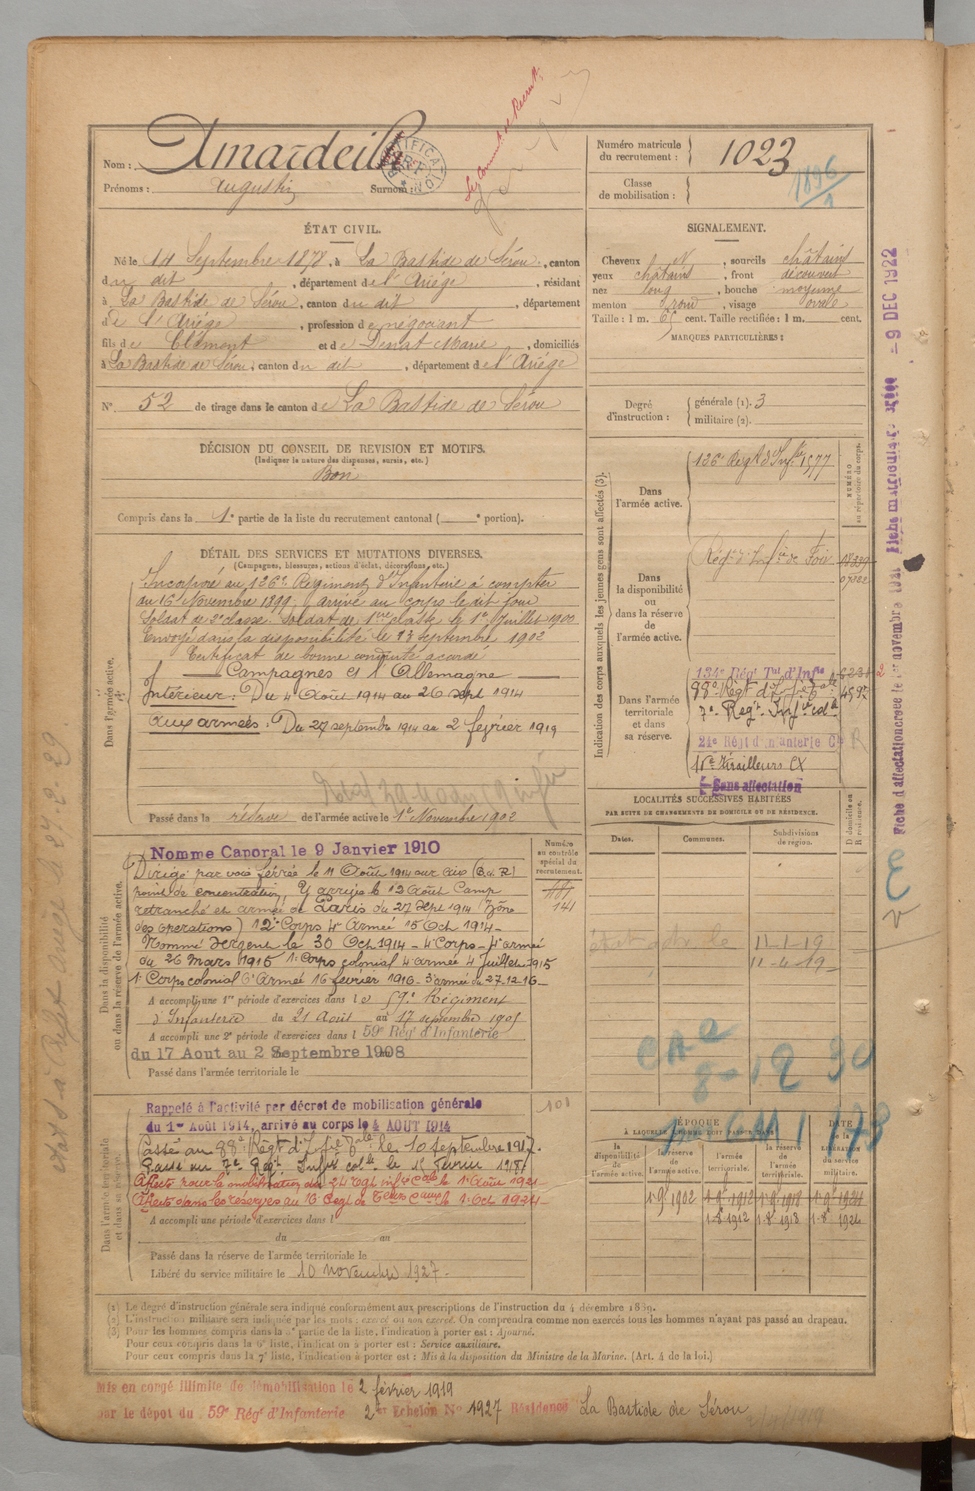 Nom : Amardeilh
Prénoms : Augustin Surnom :
Numéro matricule du recrutement : 1023
Classe de mobilisation : 1896
ÉTAT CIVIL.
Né le 14 Septembre 1878, à La Bastide de Sérou, canton
du dit, département de l'Ariège, résidant
à La Bastide de Sérou, canton du dit, département
de l'Ariège, profession de négociant
fils de Clément et de Marie, domiciliés
à La Bastide de Sérou, canton du dit, département de l'Ariège
N° 52 de tirage dans le canton de La Bastide de Sérou
SIGNALEMENT.
Cheveux N, sourcils châtains
yeux châtains, front découvert
nez long, bouche moyenne
menton rond, visage ovale
Taille : 1 m. 65 cent. Taille rectifiée : 1 m. cent.
MARQUES PARTICULIÈRES :
Degré d'instruction : générale (1). 3
militaire (2).
DÉCISION DU CONSEIL DE REVISION ET MOTIFS.
(Indiquer la nature des dispenses, sursis, etc.)
Bon
Compris dans la 1e partie de la liste du recrutement cantonal ( e portion).
DÉTAIL DES SERVICES ET MUTATIONS DIVERSES.
(Campagnes, blessures, actions d'éclat, décorations, etc.)
Dans l'armée active.
Incorporé au 126e Régiment d'Infanterie à compter
du 16 Novembre 1899, arrivé au corps le dit jour
Soldat de 2e classe. Soldat de 1ère classe le 1er Juillet 1900
Envoyé dans la disponibilité le 13 septembre 1902
Certificat de bonne conduite accordé
Campagnes et l'Allemagne
Intérieur : Du 4 Août 1914 au 26 sept 1914
aux armées : Du 27 septembre 1914 au 2 février 1919
Passé dans la réserve de l'armée active le 1er Novembre 1902
Dans la disponibilité ou dans la réserve de l'armée active.
Nomme Caporal le 9 Janvier 1910
Dirigé par voie ferrée le 11 Août 1914 sur
point de concentration. Y arrivé le 12 Août Camp
retranché et armée de Paris du 27 Sept 1914 (Zône
des opérations) 12e Corps 4e Armée 15 Oct 1914 -
Nommé Sergent le 30 Oct 1914 - 4e Corps - 4e armée
du 26 mars 1915 1er Corps colonial 4e armée 4 Juillet 1915
1er Corps colonial 6e Armée 16 février 1916 - 3e armée du 27.12.16 -
A accompli une 1re période d'exercices dans le 59e Régiment
d'Infanterie du 21 Août au 17 septembre 1905
A accompli une 2e période d'exercices dans le 59e Régt d'Infanterie
du 17 Aout au 2 Septembre 1908
Passé dans l'armée territoriale le
Numéro au contrôle spécial du recrutement.
141
Dans l'armée territoriale et dans sa réserve.
Rappelé à l'activité par décret de mobilisation générale
du 1er Août 1914, arrivé au corps le 4 AOUT 1914
Passé au 88e Régt d'Inf le 10 septembre 1917.
Passé au 7e Régt Inf cole le 15 février 1918
101
A accompli une période d'exercices dans l
du au
Passé dans la réserve de l'armée territoriale le
Libéré du service militaire le 10 novembre 1927 -
Indication des corps auxquels les jeunes gens sont affectés (3).
NUMÉRO au répertoire du corps.
Dans l'armée active. 126e Régt d'Infie 1577
Dans la disponibilité ou dans la réserve de l'armée active. Régt d'Infie de Foix
Dans l'armée territoriale et dans sa réserve.
134e Régt Tal d'Infie
88e Régt d'Inf
7e Régt Infie cole
24e Régt d'Infanterie Cle
16e Tirailleurs
Sans affectation
LOCALITÉS SUCCESSIVES HABITÉES
PAR SUITE DE CHANGEMENTS DE DOMICILE OU DE RÉSIDENCE.
Dates. Communes. Subdivisions de région. D domicile ou R résidence.
11-1-19
11-4-19
ÉPOQUE
À LAQUELLE L'HOMME DOIT PASSER DANS
la disponibilité de l'armée active. la réserve de l'armée active. l'armée territoriale. la réserve de l'armée territoriale. DATE de la LIBÉRATION du service militaire.
1-9-1902 1-9-1912 1-9-1918 1-9-1924
1-8-1912 1-8-1918 1-8-1924
Fiche d'affectation créée le 1er novembre 1921 Fiche matricule créée - 9 DEC 1922
(1) Le degré d'instruction générale sera indiqué conformément aux prescriptions de l'instruction du 4 décembre 1889.
(2) L'instruction militaire sera indiquée par les mots : exercé ou non exercé. On comprendra comme non exercés tous les hommes n'ayant pas passé au drapeau.
(3) Pour les hommes compris dans la 5e partie de la liste, l'indication à porter est : Ajourné.
Pour ceux compris dans la 6e liste, l'indication à porter est : Service auxiliaire.
Pour ceux compris dans la 7e liste, l'indication à porter est : Mis à la disposition du Ministre de la Marine. (Art. 4 de la loi.)
Mis en congé illimité de démobilisation le 2 février 1919
par le dépot du 59e Régt d'Infanterie 2e Echelon No 1927 Résidence La Bastide de Sérou